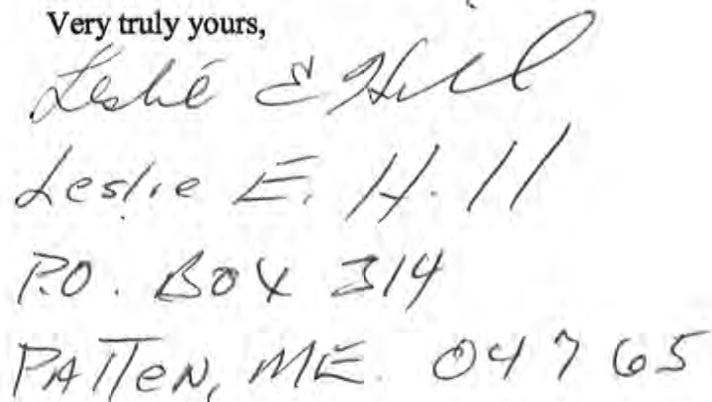 Very truly yours,
Leslie E Hill
Leslie E. Hill
P.O. Box 314
PATTeN, ME. 04765